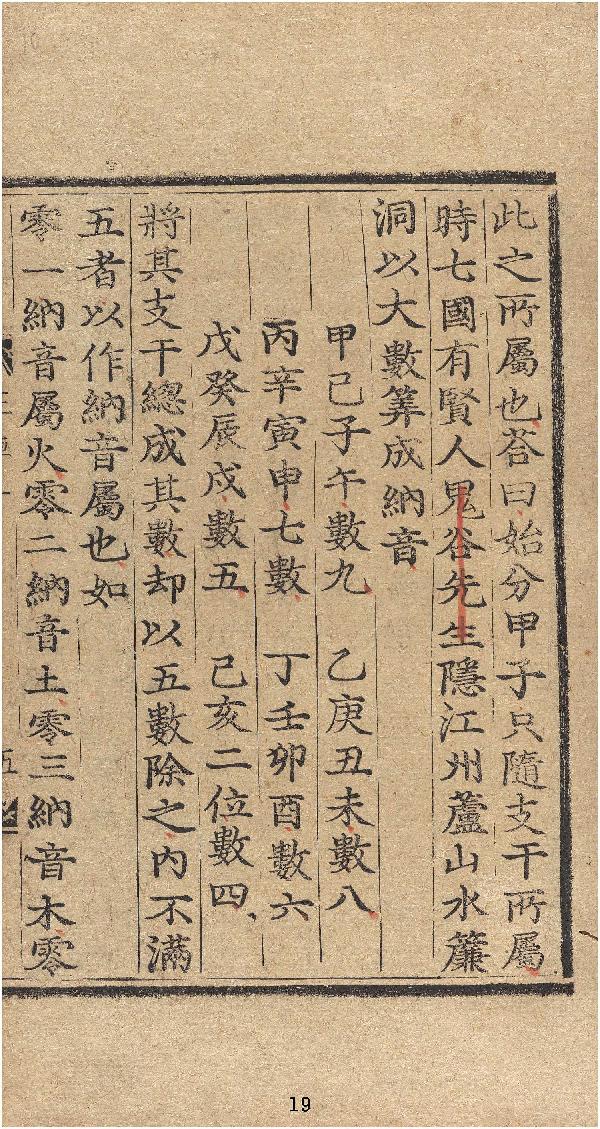 此之所屬也荅曰始分甲子只隨支干所屬
時七國有賢人鬼谷先生隱江州蘆山水簾
洞以大數筭成納音
甲己子午數九 乙庚丑未數八
丙辛寅申七數 丁壬卯酉數六
戊癸辰戌數五 己亥二位數四
將其支干總成其數却以五數除之內不滿
五者以作納音屬也如
零一納音屬火零二納音土零三納音木零
19